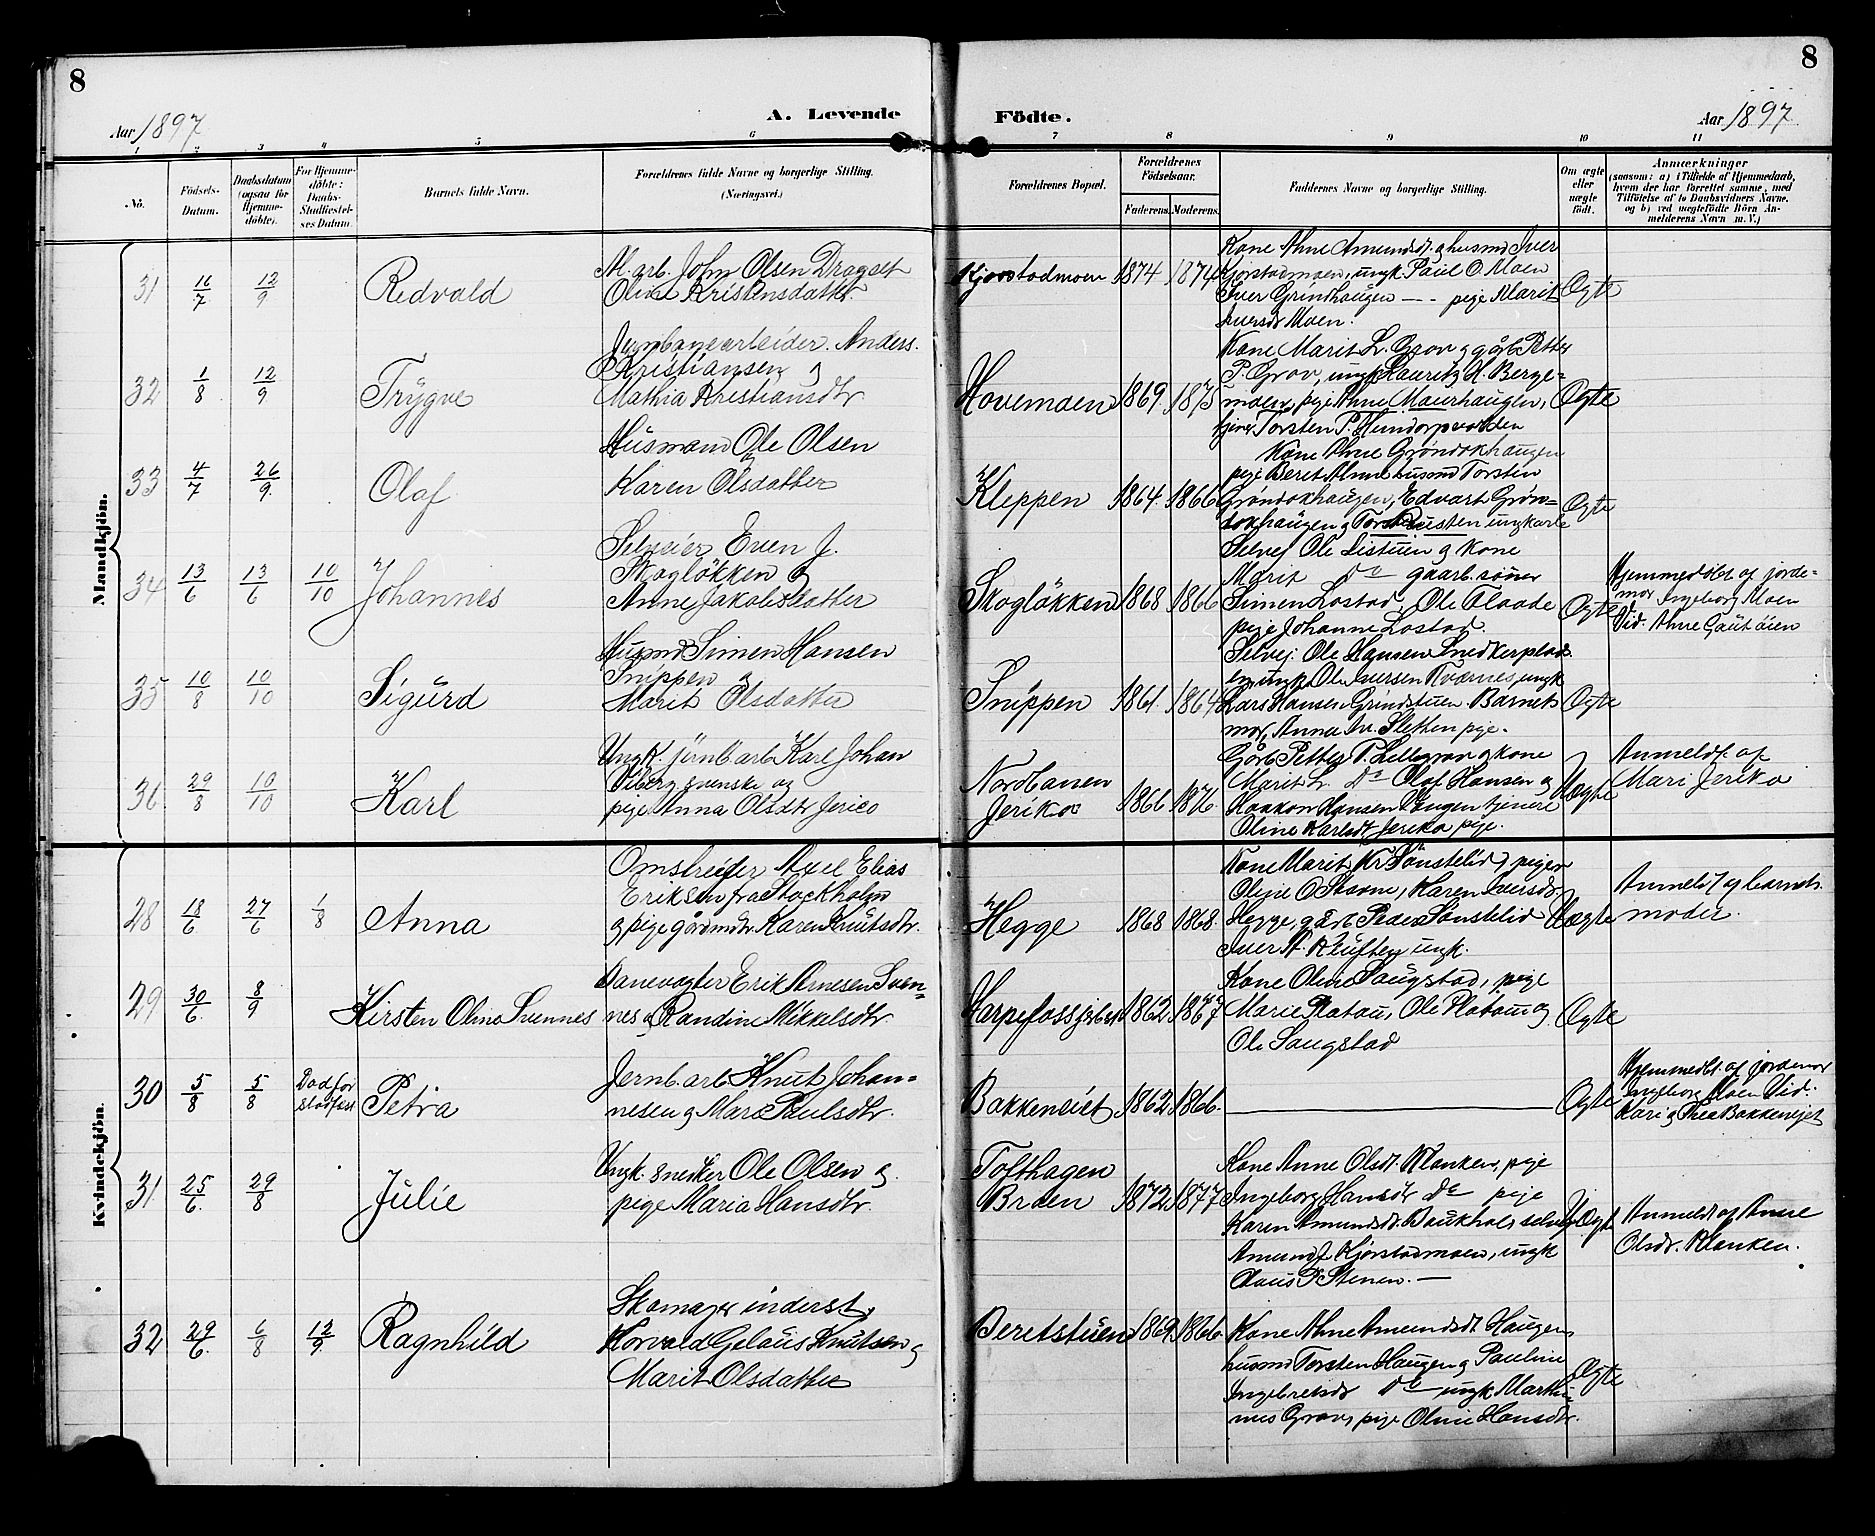 8
8
Aar 1897
A. Levende
Födte.
Aar 1897
1 2 3 4 5 6 7 8 9 10 11
No.
Födsels-
Datum.
Daabsdatum
(ogsaa for
Hjemme-
döbte).
For Hjemme-
döbte:
Daabs-
Stadfæstel-
ses Datum.
Barnets fulde Navn.
Forældrenes fulde Navne og borgerlige Stilling.
(Næringsvei.)
Forældrenes Bopæl.
Forældrenes
Födselsaar.
Faderens.
Moderens.
Faddernes Navne og borgerlige Stilling.
Om ægte
eller
uægte
født.
Anmærkninger
(saasom: a) i Tilfælde af Hjemmedaab,
hvem der har forrettet samme, med
Tilföielse af to Daabsvidners Navne.
og b) ved uægtefödte Börn An-
melderens Navn m. V.)
Mandkjön.
31 16/7 12/9 Redvald
M. arb. John Olsen Dragset
Oline Kristensdatter
Kjorstadmoen 1874 1874
Kone Ahne Amundsdt. og husmd Iver
Kjorstadmoen, ungk. Paul O. Moen
Iver Grindhaugen — - pige Marit
Iversdr Moen.
Ægte
32 1/8 12/9 Trygve
Jernbanearbeider. Anders.
Kristiansen og
Mathia Kristiansdtr
Hovemoen 1869 1875
Kone Marit L. Grov og gårb. Petter
P. Grov, ungk Lauritz H. Berge-
moen, pige Ahne Maurhaugen,
tjener Torsten P. Hundorpvolden
Ægte
33 4/7 26/9 Olaf
Husmand Ole Olsen
og
Karen Olsdatter
Kleppen 1864. 1866
Kone Ahne Gröndokhaugen
pige Beret Ahne husmd Torsten
Gröndokhaugen, Edvart Grøn-
dokhaugen og ungkarle
Ægte
34 13/6 13/6 10/10 Johannes
Selveier Even J.
Skogløkken og
Anne Jakobsdatter
Skogløkken 1868 1866
Selvej Ole Listuen og kone
Marit Do gaarb. sønner
Simen Lostad, Ole Olaade
pige Johanne Lostad.
Ægte
Hjemmedöbt af jorde-
mor Ingeborg Moen
Vid. Ahne Gautøien
35 10/8 10/10 Sigurd
Husmd Simen Hansen
Snippen og
Marit Olsdatter
Snippen 1861. 1864
Selvej. Ole Hansen Snedkerplad-
en, ungk. Ole Iversen Kværnes, ungk
Lars Hansen Grindstuen. Barnets
mor, Anna Iv. Sletten pige.
Ægte
36 29/8 10/10 Karl
Ungk. jernb. arb Karl Johan
Viberg svenske og
pige Anna Olsdtr Jerico
Nordbanen
Jeriko 1866 1876
Gårb Petter P. Lillegrov og kone
Marit L. Do Olaf Hansen og
Haakon Hansen Haugen tjenere
Oline Karlsdt Jeriko pige.
Uægte
Anmeldt af
Mari Jeriko
Kvindekjön.
28 18/6 27/6 1/8 Anna
Omstreifer Axel Elias
Eriksen fra Stockholm
og pige gårdmdtr. Karen Knutsdtr.
Hegge 1868 1868.
Kone Marit Kr Sönstelid, piger
Oline O Stavne, Karen Iversdr.
Hegge, gårb Peder Sönstelid
Iver N. Kluften ungk.
Uægte
Anmeldt og barnets
moder.
29 30/6. 8/9 Kirsten Olina Svennes
Banevogter Erik Arnesen Sven-
nes og Randine Mikkelsdtr
Harpefossjerbst 1862 1867
Kone Oline Saugstad, pige
Marie Platau, Ole Platau og
Ole Saugstad
Ægte
30 5/8 5/8 Död før
stadfæst Petra
Jernb. arb Knut Johan-
nesen og Mari Paulsdtr.
Bakkeneiet 1862 1866.
Ægte
Hjemmedbt. af jordemor
Ingeborg Moen Vid.
Kari og Thea Bakkenejet
31 25/6. 29/8 Julie
Ungk. snedker Ole Olsen og
pige Maria Hansdtr.
Tofthagen
Braen 1872 1877
Kone Anne Olsdt. Klanken, pige
Ingeborg Hansdr Do pige
Karen Amundsdt. Baukhol, selvej
Amund J. Kjörstadmoen, ungk
Claus P. Stenen. —
Uægte
Anmeldt af Anne
Olsdr. Klanken.
32 29/6. 6/8 12/9 Ragnhild
Skomager inderst,
Torvald Gelaus Knutsen og
Marit Olsdatter
Beretstuen 1869 1866.
Kone Ahne Amundsdt Haugen,
husmd Torsten Haugen og Pauline
Ingebretsdr Do — ungk Marthi-
nus Grov, pige Oline Hansdtr.
Ægte